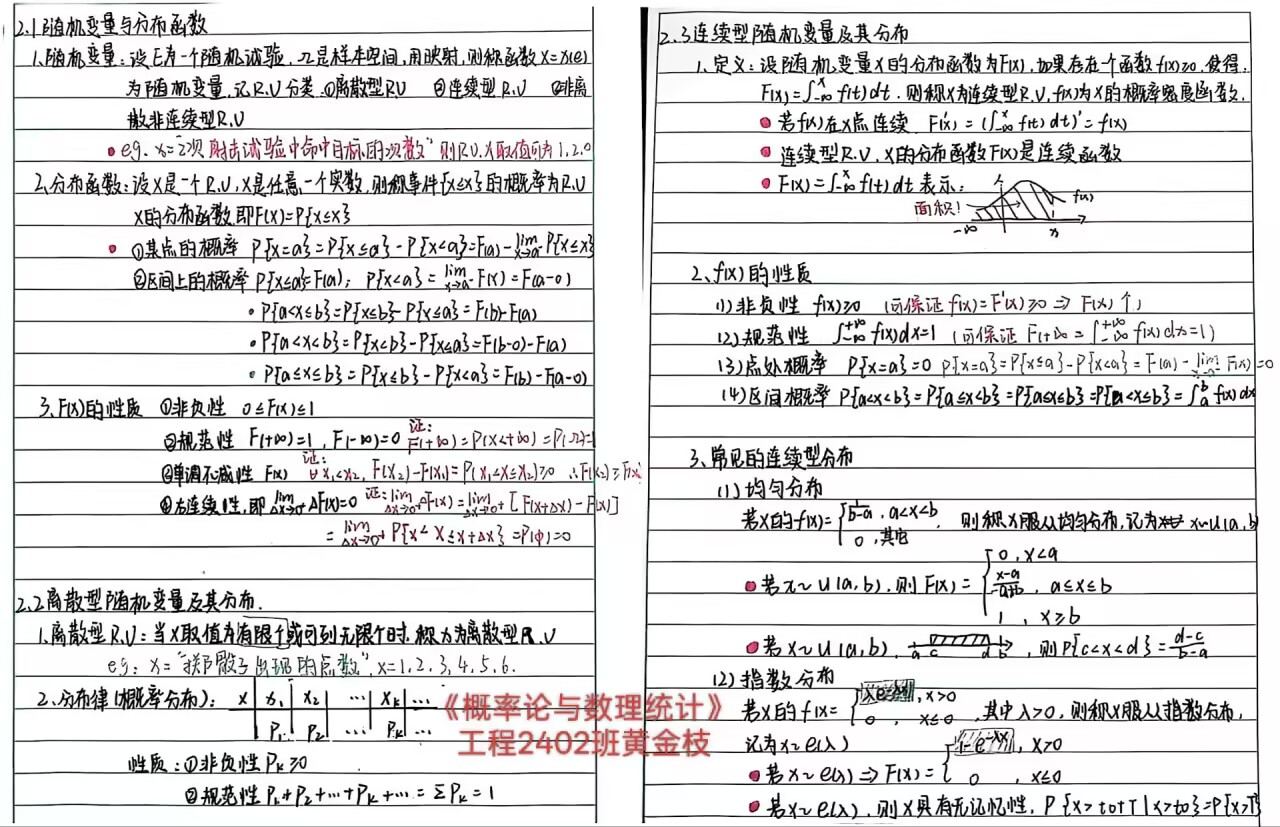 2.1随机变量与分布函数
1、随机变量：设E为一个随机试验，Ω是样本空间，用映射，则称函数X=X(e)
为随机变量，记R.V 分类 ①离散型RV ②连续型R.V ③非离
散非连续型R.V
• eg、X="2次射击试验中命中目标的次数" 则R.V.X取值可为1,2,0
2、分布函数：设X是一个R.V，X是任意一个实数，则称事件{X≤x}的概率为R.V
X的分布函数即F(X)=P{X≤x}
• ①某点的概率 P{X=a}=P{X≤a}-P{X<a}=F(a)-lim x→a⁻ P{X≤x}
②区间上的概率 P{X≤a}=F(a)；P{X<a}=lim x→a⁻ F(X)=F(a-0)
• P{a<X≤b}=P{X≤b}-P{X≤a}=F(b)-F(a)
• P{a<X<b}=P{X<b}-P{X≤a}=F(b-0)-F(a)
• P{a≤X≤b}=P{X≤b}-P{X<a}=F(b)-F(a-0)
3、F(X)的性质 ①非负性 0≤F(X)≤1
②规范性 F(+∞)=1，F(-∞)=0 证：F(+∞)=P(X<+∞)=P(Ω)=1
③单调不减性 F(X) 证：∀X₁<X₂，F(X₂)-F(X₁)=P(X₁<X≤X₂)≥0 ∴F(X₂)≥F(X₁)
④右连续性，即 lim Δx→0⁺ ΔF(X)=0 证：lim Δx→0⁺ ΔF(X)=lim Δx→0⁺ [F(X+ΔX)-F(X)]
=lim Δx→0⁺ P{X<X≤X+ΔX}=P(Φ)=0
2.2离散型随机变量及其分布.
1、离散型R.V：当X取值为有限个或可列无限个时，称X为离散型R.V
eg: X="掷骰子出现的点数"，X=1,2,3,4,5,6.
2、分布律(概率分布)：X | X₁ | X₂ | ... | Xk | ...
P₁ | P₂ | ... | Pk | ...
性质：①非负性 Pk≥0
②规范性 P₁+P₂+...+Pk+...=ΣPk=1
2.3连续型随机变量及其分布
1、定义：设随机变量X的分布函数为F(X)，如果存在一个函数f(x)≥0，使得：
F(X)=∫₋∞ˣ f(t)dt. 则称X为连续型R.V，f(x)为X的概率密度函数.
• 若f(x)在X点连续 F'(X)=(∫₋∞ˣ f(t)dt)'=f(x)
• 连续型R.V.X的分布函数F(X)是连续函数
• F(X)=∫₋∞ˣ f(t)dt 表示：
f(x)
面积!
-∞ x
2、f(x)的性质
(1)非负性 f(x)≥0 (可保证f(x)=F'(x)≥0 ⇒ F(X)↑)
(2)规范性 ∫₋∞⁺∞ f(x)dx=1 (可保证 F(+∞=∫₋∞⁺∞ f(x)dx=1)
(3)点处概率 P{X=a}=0 P{X=a}=P{X≤a}-P{X<a}=F(a)-lim x→a⁻ F(X)=0
(4)区间概率 P{a<X<b}=P{a≤X<b}=P{a≤X≤b}=P{a<X≤b}=∫ₐᵇ f(x)dx
3、常见的连续型分布
(1)均匀分布
若X的f(x)={1/(b-a)，a<X<b
0，其它 则称X服从均匀分布，记为X~U(a,b)
• 若X~U(a,b)，则F(X)={0，X<a
(x-a)/(-a+b)，a≤X≤b
1，X≥b
• 若X~U(a,b)，a c d b，则P{c<X<d}=(d-c)/(b-a)
(2)指数分布
若X的f(x)={λe^(-λx)，X>0
0，X≤0，其中λ>0，则称X服从指数分布，
记为X~e(λ)
• 若X~e(λ) ⇒ F(X)={1-e^(-λx)，X>0
0，X≤0
• 若X~e(λ)，则X具有无记忆性，P{X>t0+T|X>t0}=P{X>T}
《概率论与数理统计》
工程2402班黄金枝